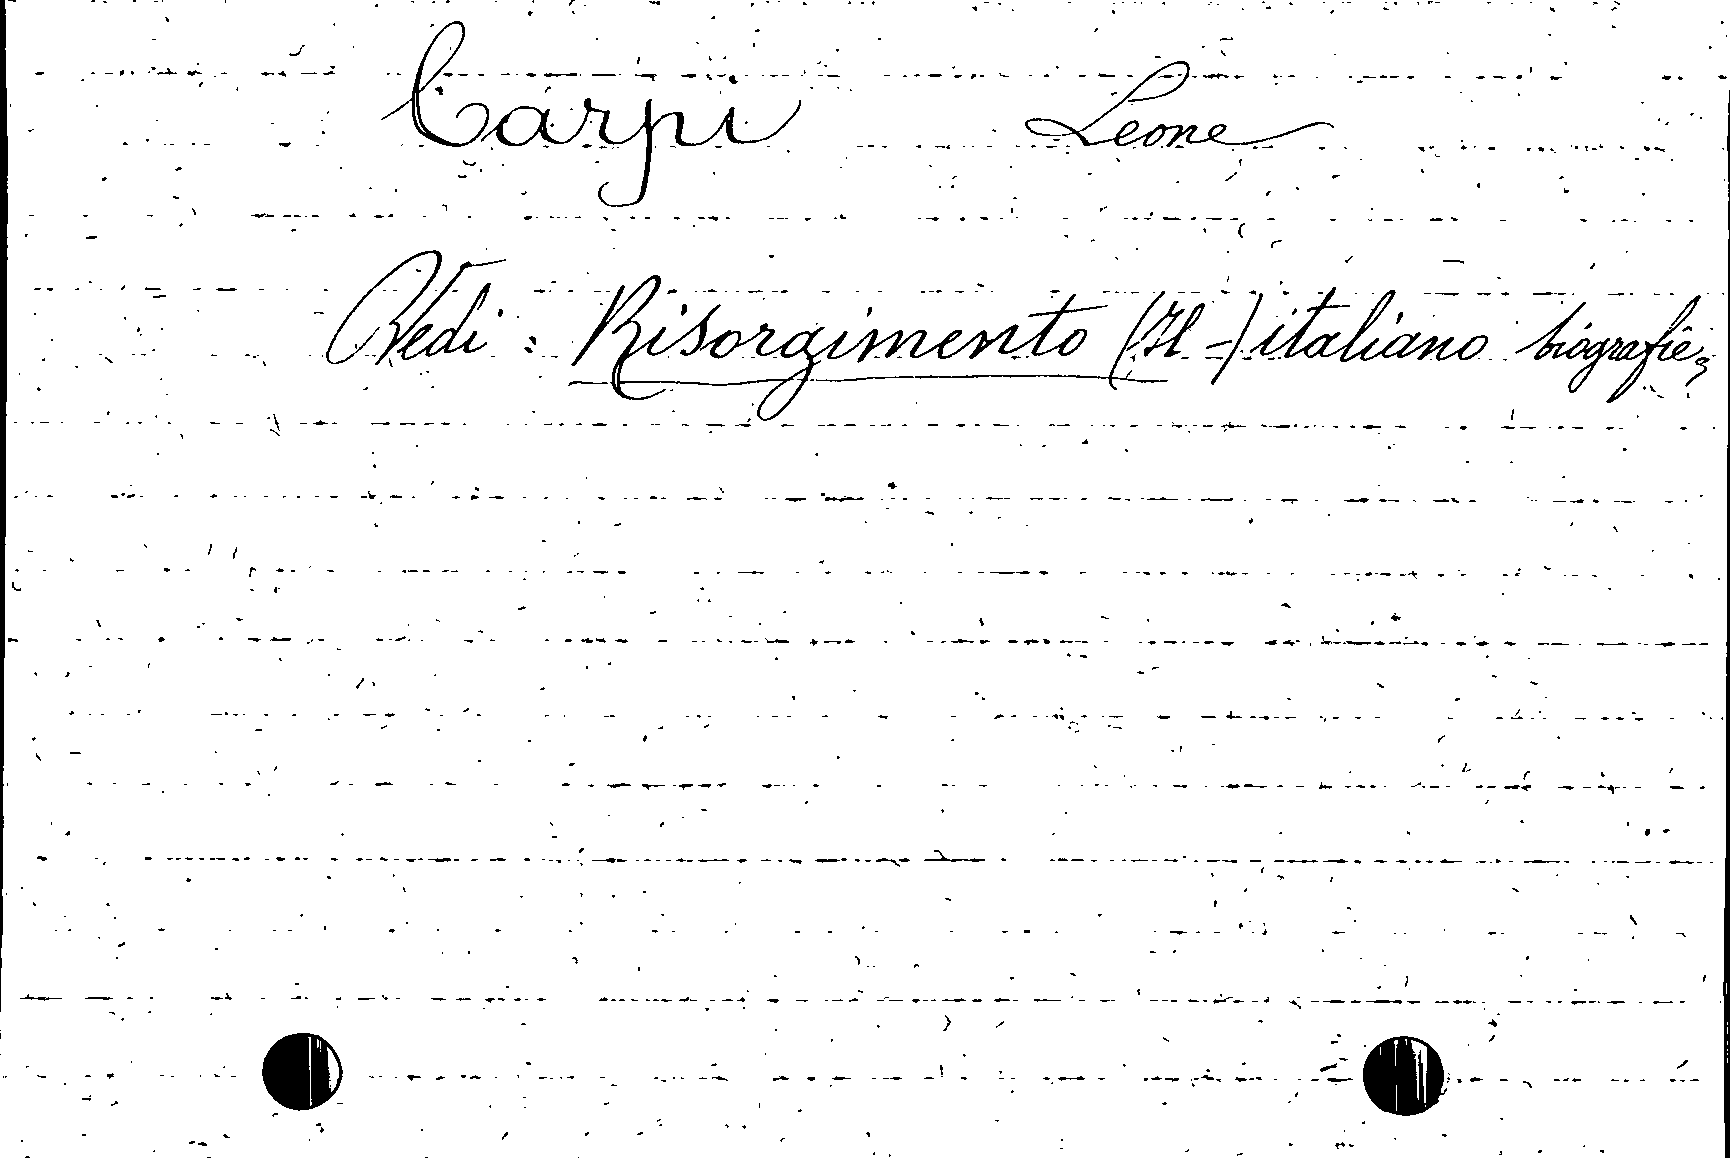 Carpi Leone
Vedi : Risorgimento (Il -) italiano biografie,